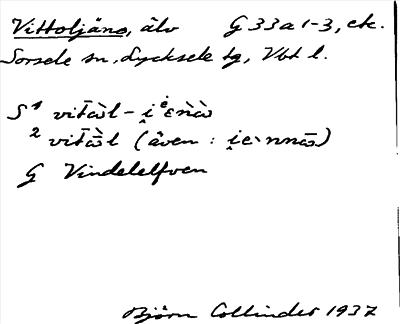 Vittoljäno, älv G 33 a 1-3, etc.
Sorsele sn, Lycksele tg, Vbt l.
S¹ vitāl - i̭ᵉɛnà̀
² vitāl (även : i̭e·nnā̀)
G Vindelelfven
Björn Collinder 1937